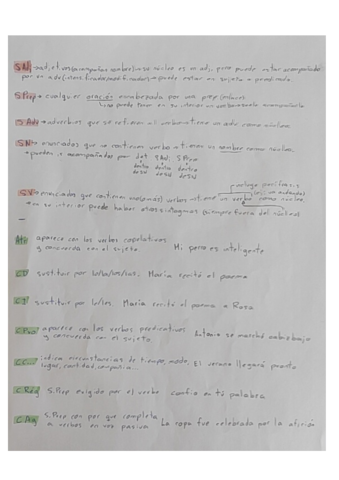 SAdj → adj, et. verbo ni puede su núcleo es un adj, pero puede estar acompañado
por un adv (intensificador/modificador) → puede estar en sujeto o predicado
SPrep → cualquier oración encabezada por una prep/enlace
puede tener en su interior un verbo acompañado
SAdv → adverbios que se refieren al verbo tiene un adv como núcleo
SN → enunciados que no contienen verbo tiene un nombre como núcleo
pueden ir acompañados por det SAdj SPrep
dentro dentro dentro
del SN del SN del SN
porque perífrasis
(ej: va andando)
SV → enunciados que contienen uno (o más) verbos → tiene un verbo como núcleo
en su interior puede haber otros sintagmas (siempre fuera del núcleo)
—
Atr aparece con los verbos copulativos
y concuerda con el sujeto Mi perro es inteligente
CD sustituir por lo/la/los/las. María recitó el poema
CI sustituir por le/les. María recitó el poema a Rosa
CPvo aparece con los verbos predicativos
y concuerda con el sujeto. Antonio se marchó
CC indica circunstancias de tiempo, modo,
lugar, cantidad, compañía... El verano llegará pronto
CReg S.Prep exigido por el verbo confío en tu palabra
CAg S.Prep con por que completa
a verbos en voz pasiva La copa fue celebrada por la afición